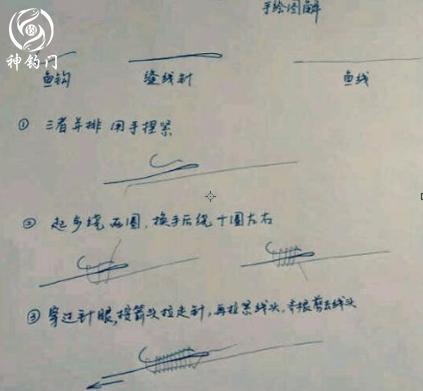 手绘图解
神钓门
鱼钩 缝线针 鱼线
① 三者并排 用手捏紧
② 起步绕五圈，换手后绕十圈左右
③ 穿过针眼，按箭头拉走针，再拉紧线头，齐根剪去线头